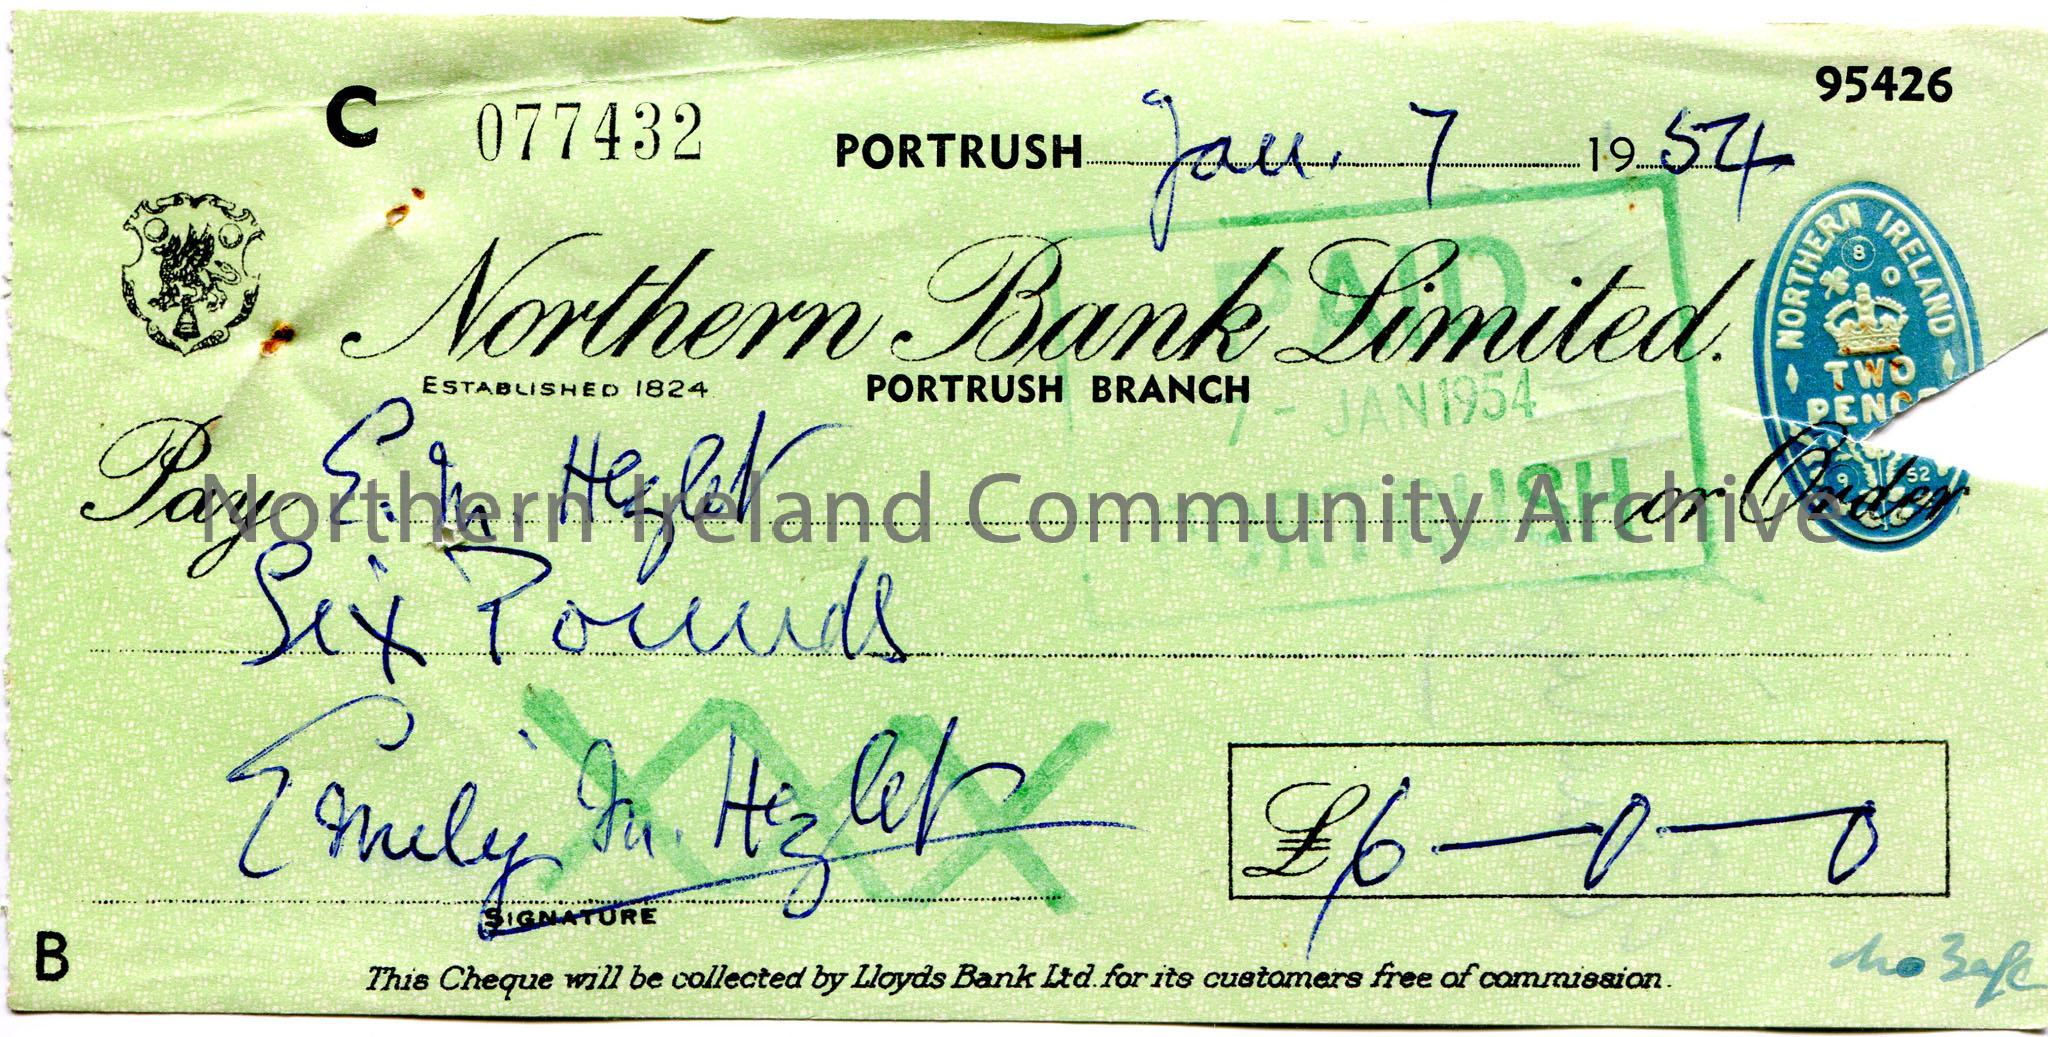 C 077432 PORTRUSH Jan. 7 1954 95426
NORTHERN IRELAND
8 0
TWO
PENCE
9 52
Northern Bank Limited.
ESTABLISHED 1824 PORTRUSH BRANCH
PAID
7 - JAN 1954
PORTRUSH
Pay E. M. Hezlet or Order
Northern Ireland Community Archive
Six Pounds
Emily M. Hezlet
SIGNATURE
£6—0—0
B
This Cheque will be collected by Lloyds Bank Ltd. for its customers free of commission.